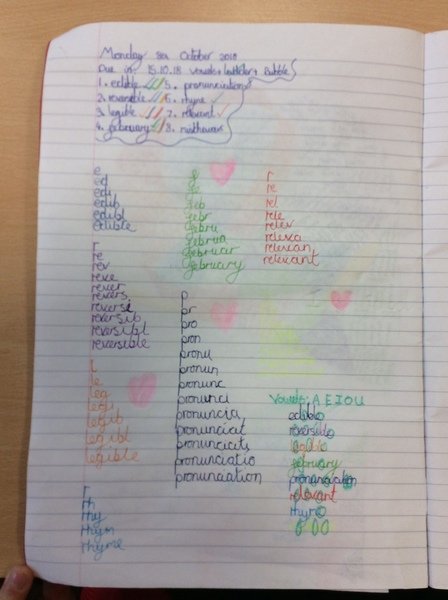 Monday 8th October 2018
Due in: 15.10.18 Vowels + ladder + Bubble
1. edible 5. pronunciation
2. reversible 6. rhyme
3. legible 7. relevant
4. february 8.
e
ed
edi
edib
edibl
edible
r
re
rev
reve
rever
revers
reversi
reversib
reversibl
reversible
l
le
leg
legi
legib
legibl
legible
r
rh
rhy
rhym
rhyme
f
fe
feb
febr
febru
februa
februar
february
p
pr
pro
pron
pronu
pronun
pronunc
pronunci
pronuncia
pronunciat
pronunciati
pronunciatio
pronunciation
r
re
rel
rele
relev
releva
relevan
relevant
Vowels: A E I O U
edible
reversible
legible
february
pronunciation
relevant
rhyme